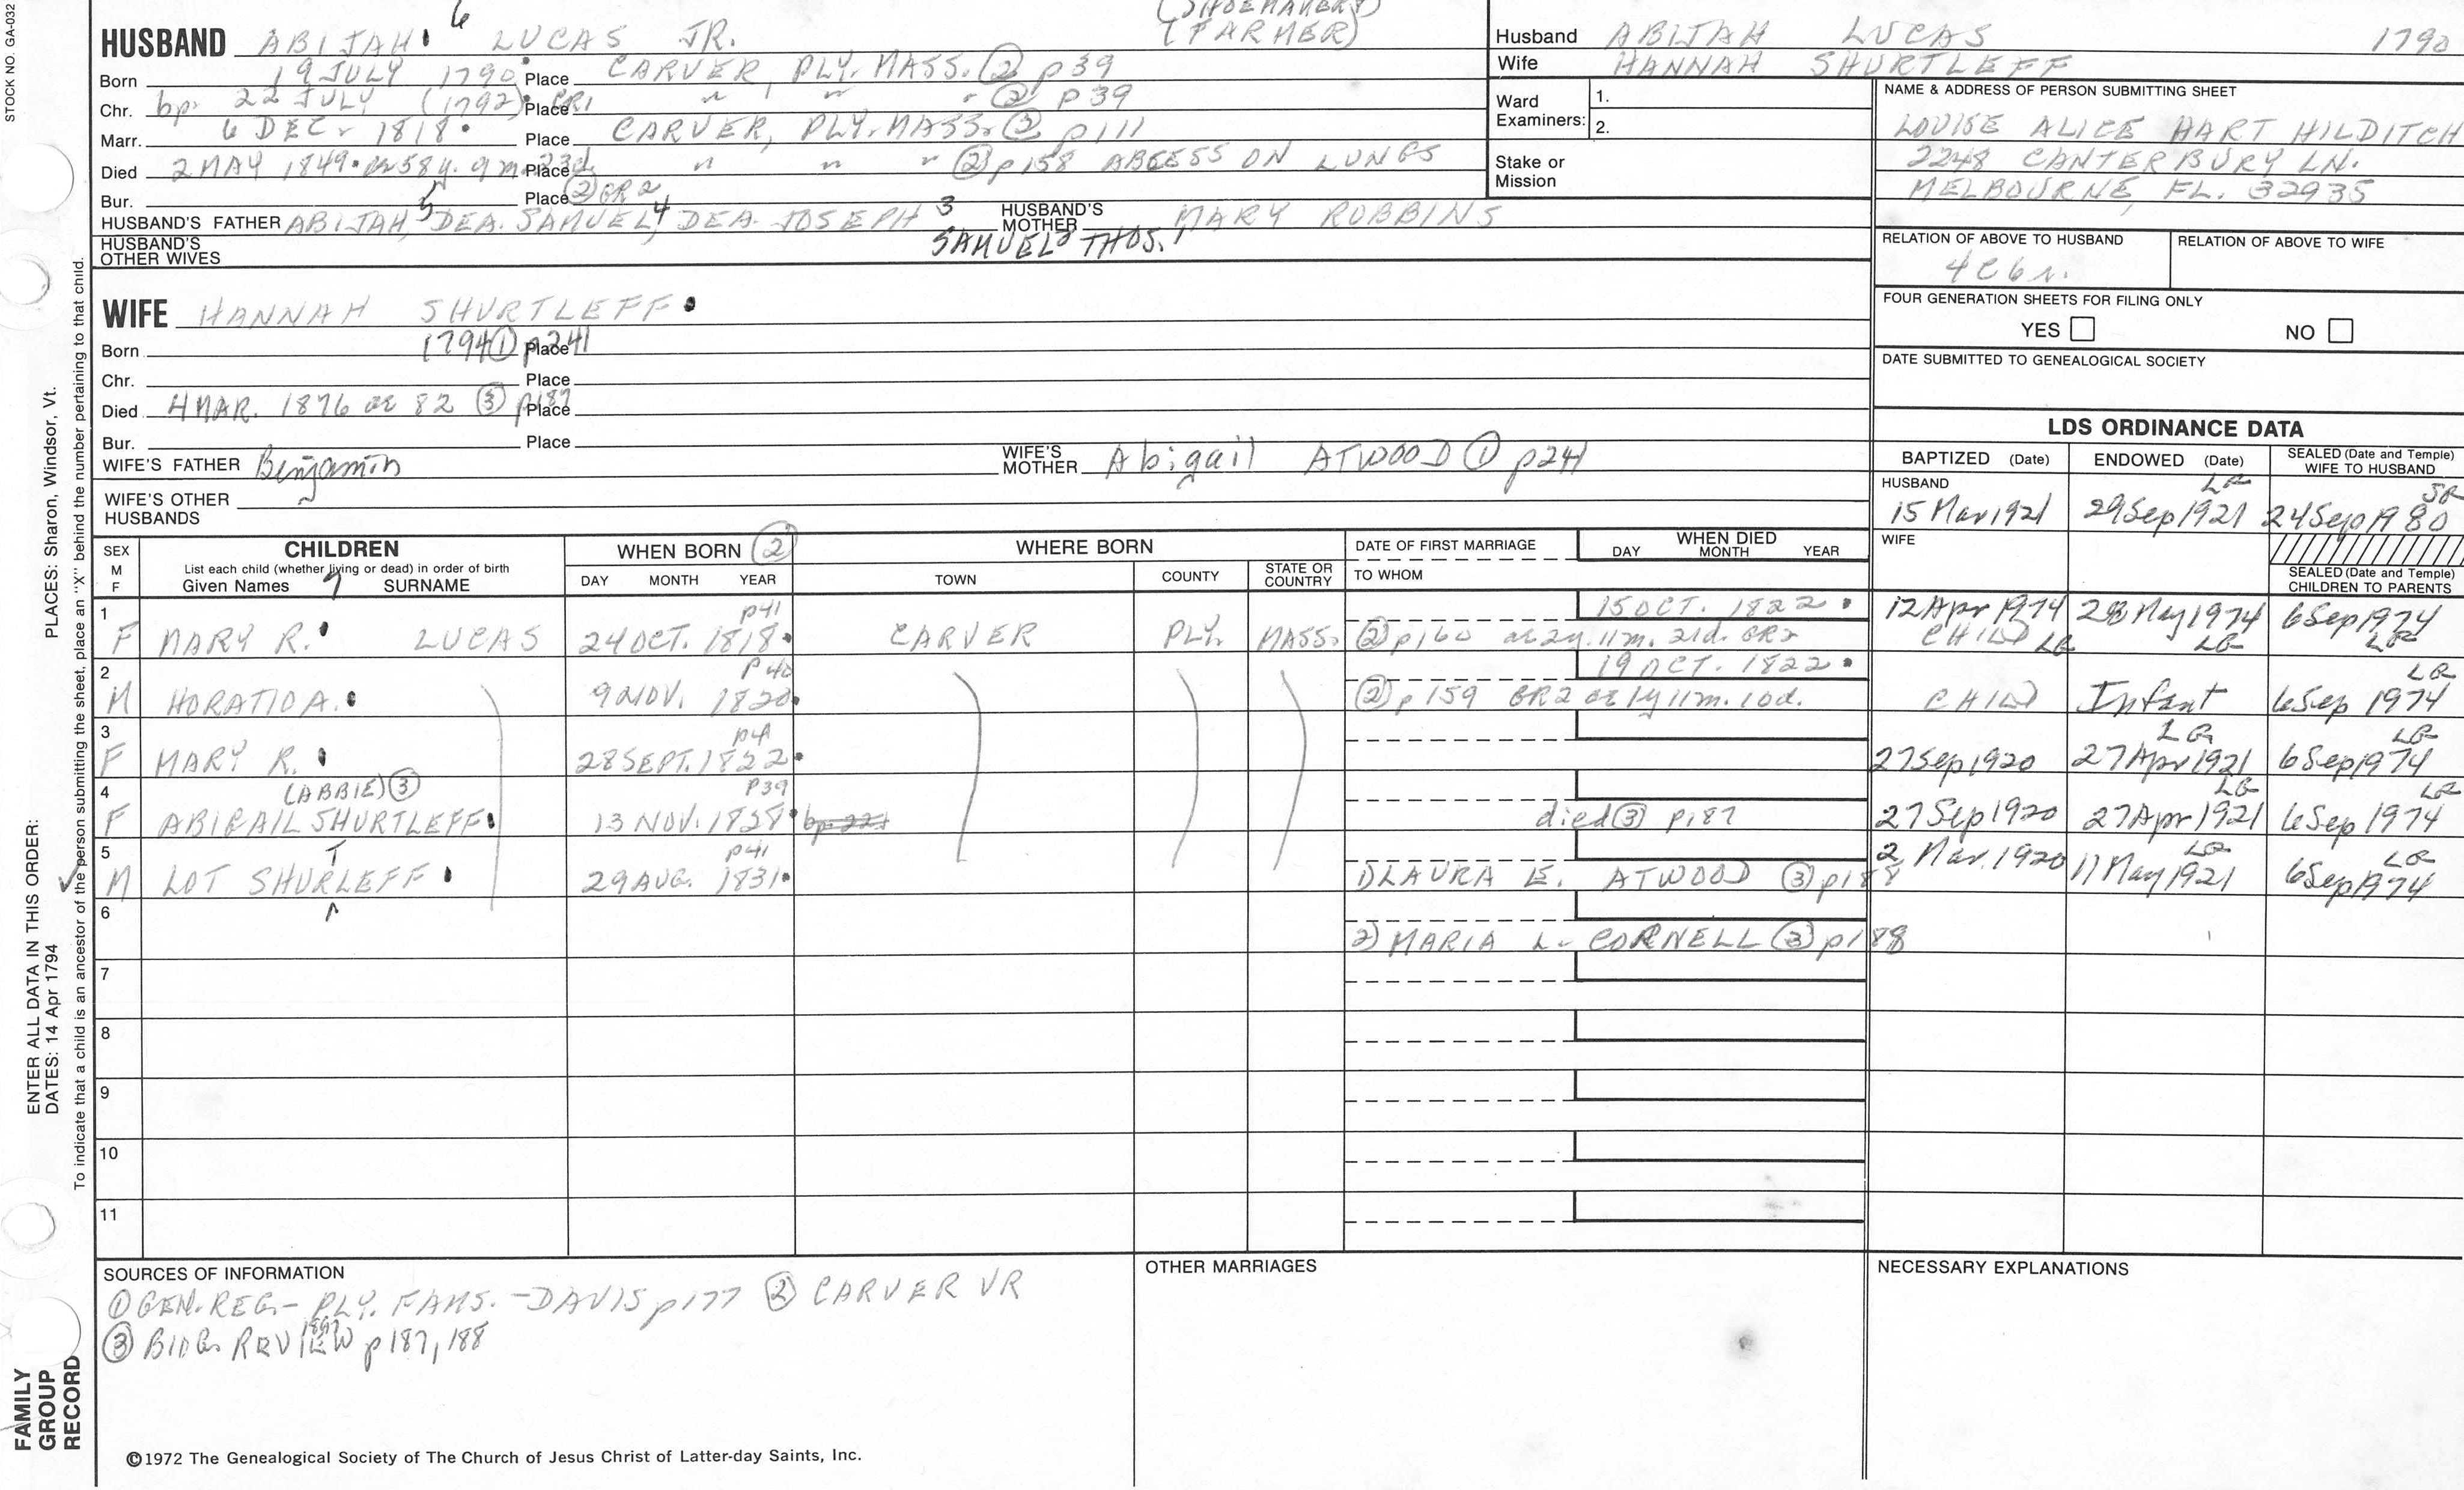 STOCK NO. GA-032
(SHOEMAKER)
(FARMER)
6
HUSBAND ABIJAH LUCAS JR.
Born 19 JULY 1790 Place CARVER, PLY. MASS. ② p39
Chr. bp. 22 JULY (1792) CR1 Place " " " ② p39
Marr. 6 DEC. 1818 Place CARVER, PLY. MASS. ② p111
Died 2 MAY 1849 ae 58y. 9m. 23d. Place " " " ② p158 ABCESS ON LUNGS
Bur. Place ② GR2
HUSBAND'S FATHER ABIJAH,5 DEA. SAMUEL,4 DEA. JOSEPH3 HUSBAND'S MOTHER MARY ROBBINS
SAMUEL2 THOS.1
HUSBAND'S OTHER WIVES
WIFE HANNAH SHURTLEFF
Born 1794 ① p241 Place
Chr. Place
Died 4 MAR. 1876 ae 82 ③ p187 Place
Bur. Place
WIFE'S FATHER Benjamin WIFE'S MOTHER Abigail ATWOOD ① p241
WIFE'S OTHER HUSBANDS
Husband ABIJAH LUCAS 1790
Wife HANNAH SHURTLEFF
Ward Examiners: 1.
2.
Stake or Mission
NAME & ADDRESS OF PERSON SUBMITTING SHEET
LOUISE ALICE HART HILDITCH
2248 CANTERBURY LN.
MELBOURNE, FL. 32935
RELATION OF ABOVE TO HUSBAND RELATION OF ABOVE TO WIFE
4C6r.
FOUR GENERATION SHEETS FOR FILING ONLY
YES NO
DATE SUBMITTED TO GENEALOGICAL SOCIETY
LDS ORDINANCE DATA
BAPTIZED (Date) ENDOWED (Date) SEALED (Date and Temple) WIFE TO HUSBAND
HUSBAND LR SR
15 Mar 1921 29 Sep 1921 24 Sep 1980
WIFE
SEALED (Date and Temple) CHILDREN TO PARENTS
SEX M F CHILDREN List each child (whether living or dead) in order of birth Given Names 7 SURNAME
WHEN BORN ② DAY MONTH YEAR
WHERE BORN TOWN COUNTY STATE OR COUNTRY
DATE OF FIRST MARRIAGE TO WHOM WHEN DIED DAY MONTH YEAR
1 p41 15 OCT. 1822 12 Apr 1974 28 May 1974 6 Sep 1974
F MARY R. LUCAS 24 OCT. 1818 CARVER PLY. MASS. ② p160 ae 2y. 11m. 21d. GR2 CHILD LR LR LR
2 p40 19 OCT. 1822 LR
M HORATIO A. 9 NOV. 1820 ② p159 GR2 ae 1y 11m. 10d. CHILD Infant 6 Sep 1974
3 p41 LR LR
F MARY R. 28 SEPT. 1822 27 Sep 1920 27 Apr 1921 6 Sep 1974
4 (ABBIE) ③ p39 LR LR
F ABIGAIL SHURTLEFF 13 NOV. 1828 died ③ p187 27 Sep 1920 27 Apr 1921 6 Sep 1974
5 T p41 LR LR
M LOT SHURLEFF 29 AUG. 1831 1) LAURA E. ATWOOD ③ p188 2 Mar. 1920 11 May 1921 6 Sep 1974
6 2) MARIA L. CORNELL ③ p188
7
8
9
10
11
SOURCES OF INFORMATION
① GEN. REG. - PLY. FAMS. - DAVIS p177 ② CARVER VR
1897
③ BIOG. REVIEW p187, 188
OTHER MARRIAGES
NECESSARY EXPLANATIONS
©1972 The Genealogical Society of The Church of Jesus Christ of Latter-day Saints, Inc.
FAMILY GROUP RECORD
ENTER ALL DATA IN THIS ORDER:
DATES: 14 Apr 1794 PLACES: Sharon, Windsor, Vt.
To indicate that a child is an ancestor of the person submitting the sheet, place an "X" behind the number pertaining to that child.